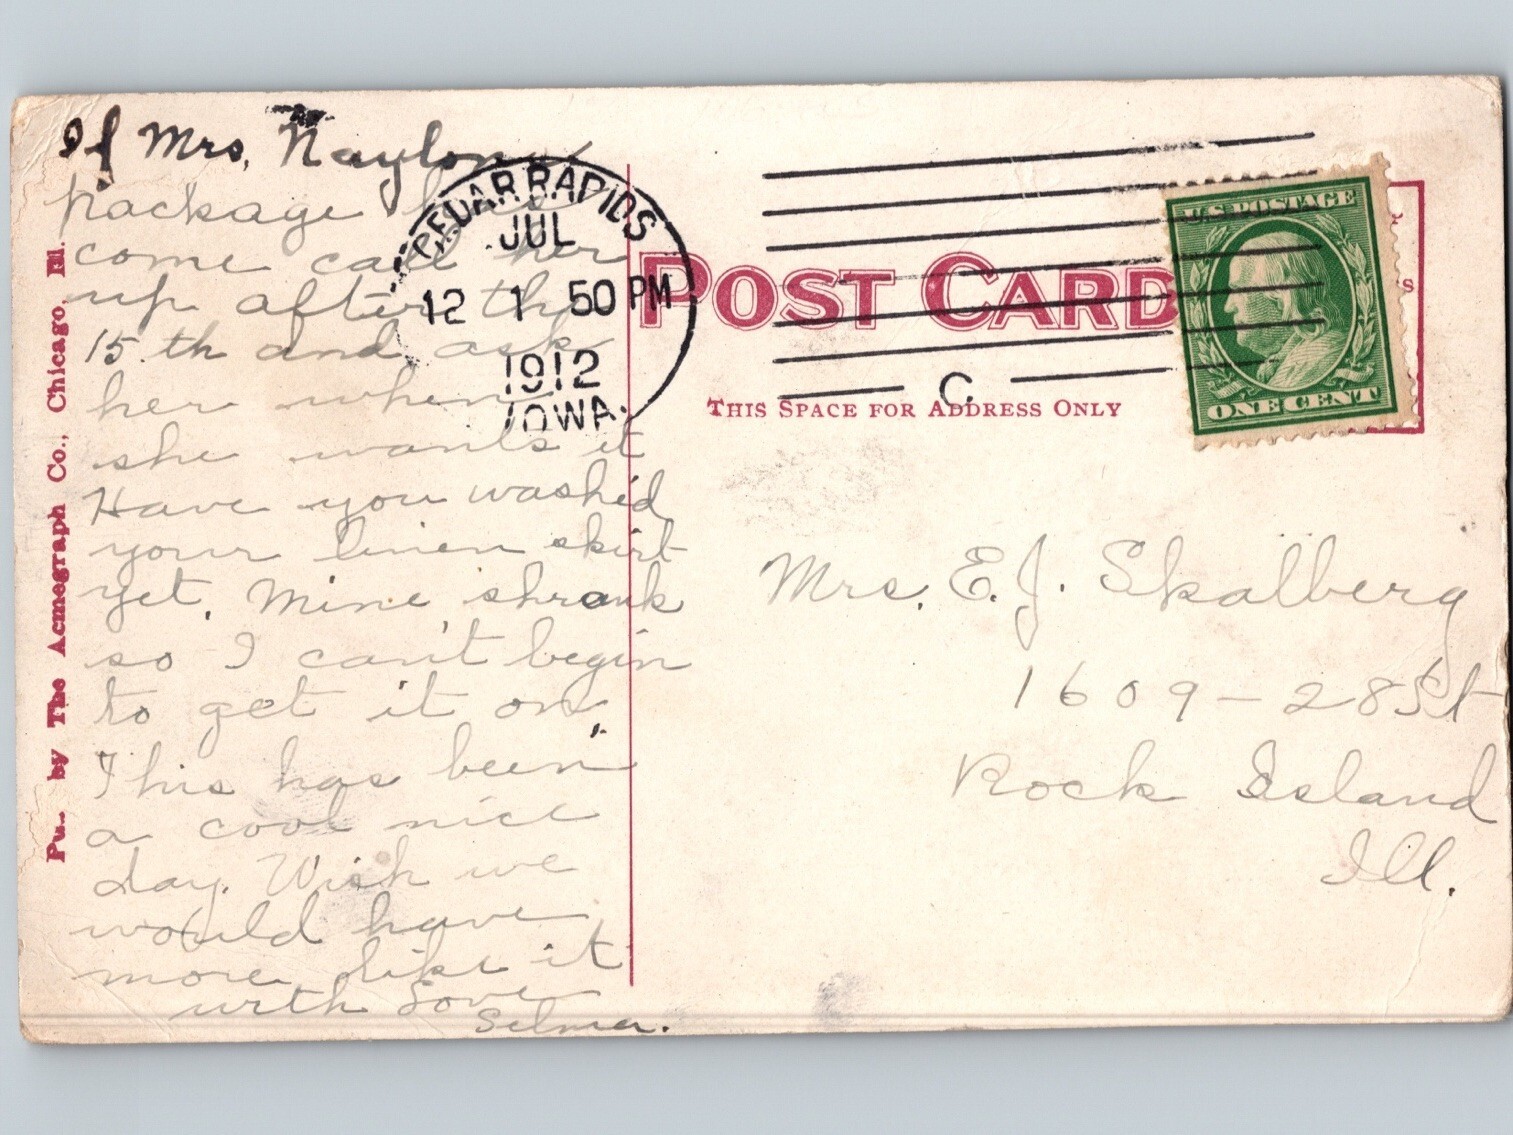 If Mrs. Naylon
package has
come call her
up after the
15.th and ask
her when
she wants it
Have you washed
your linen skirt
yet. Mine shrank
so I can't begin
to get it on.
This has been
a cool nice
day. Wish we
would have
more like it
with Love
Selma.
CEDAR RAPIDS
JUL
12 1 50 PM
1912
IOWA.
C
POST CARD
THIS SPACE FOR ADDRESS ONLY
U.S. POSTAGE
ONE CENT
Mrs. E. J. Skalberg
1609 - 28 St
Rock Island
Ill.
by The Acmegraph Co., Chicago, Ill.